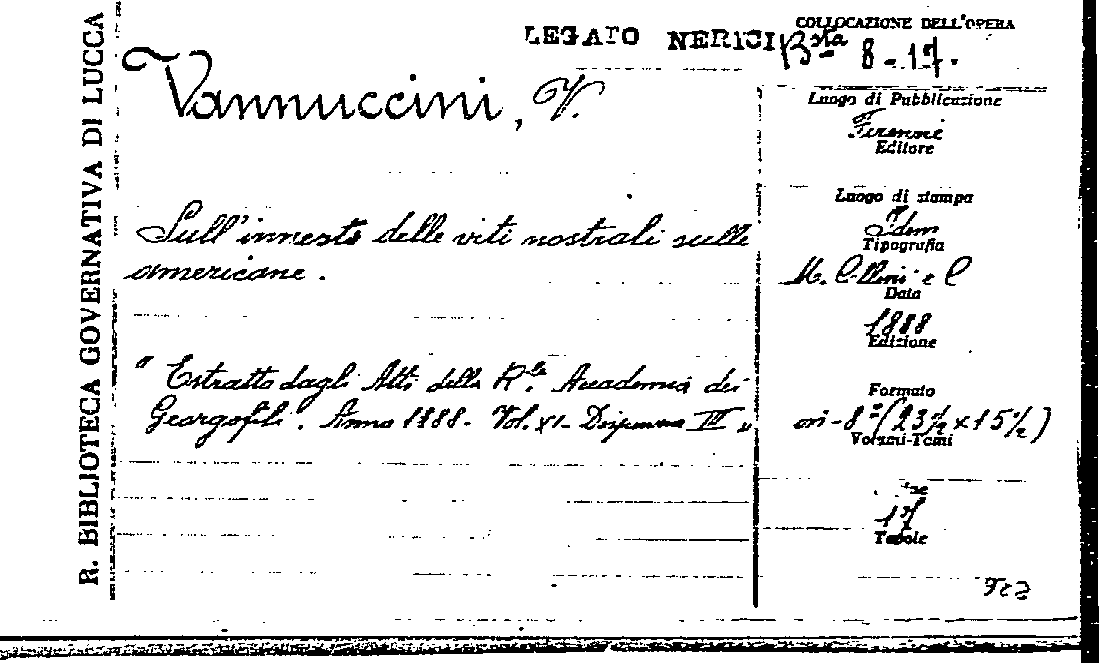 R. BIBLIOTECA GOVERNATIVA DI LUCCA
LEGATO NERICI
COLLOCAZIONE DELL'OPERA
Bsta 8-17.
Vannuccini, V.
Sull'innesto delle viti nostrali sulle
americane.
"Estratto dagli Atti della R.le Accademia dei
Georgofili. Anno 1888- Vol. XI- Dispensa III"
Luogo di Pubblicazione
Firenze
Editore
Luogo di stampa
Idem
Tipografia
M. Cellini e C
Data
1888
Edizione
Formato
in-8º (23½ x 15½)
Volumi-Tomi
17
Tavole